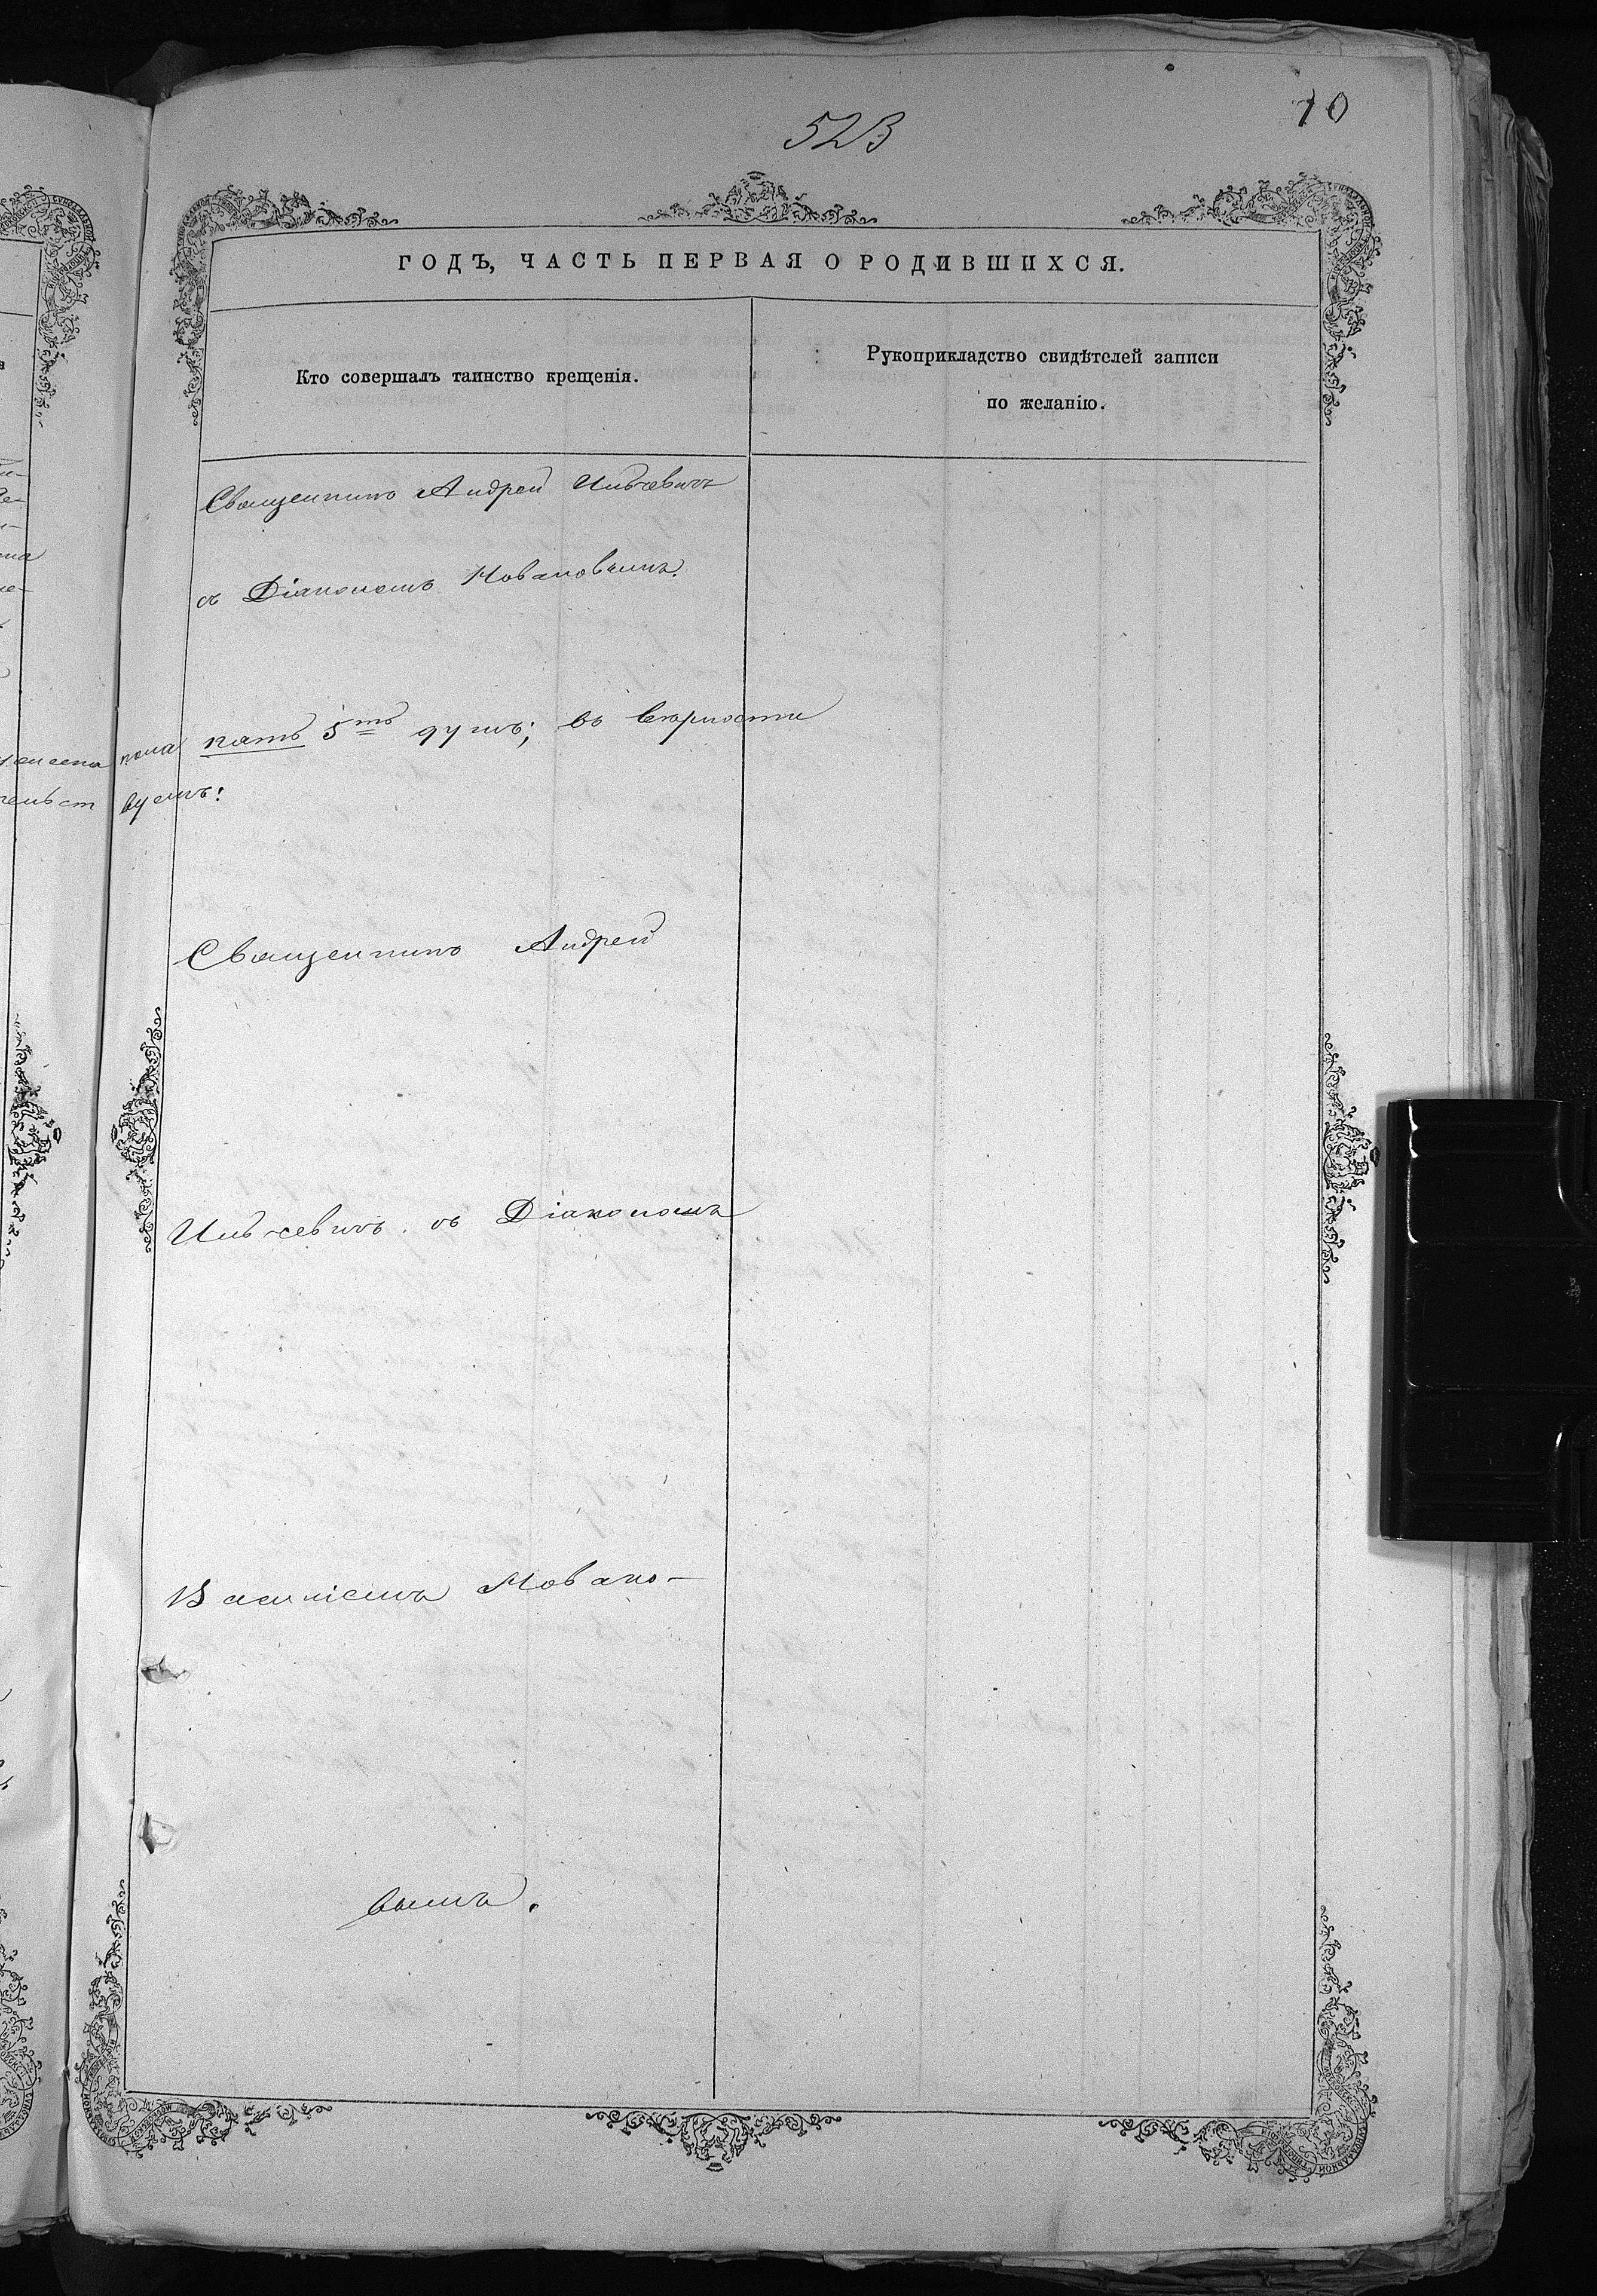 10
523
ГОДЪ, ЧАСТЬ ПЕРВАЯ О РОДИВШИХСЯ.
Кто совершалъ таинство крещенія.
Рукоприкладство свидѣтелей записи
по желанію.
Священникъ Андрей
съ Діакономъ Новаковымъ.
пола пять 5ть душъ; въ вѣрности
вуемъ:
Священникъ Андрей
съ Діакономъ
Василіемъ Новако-
вымъ.